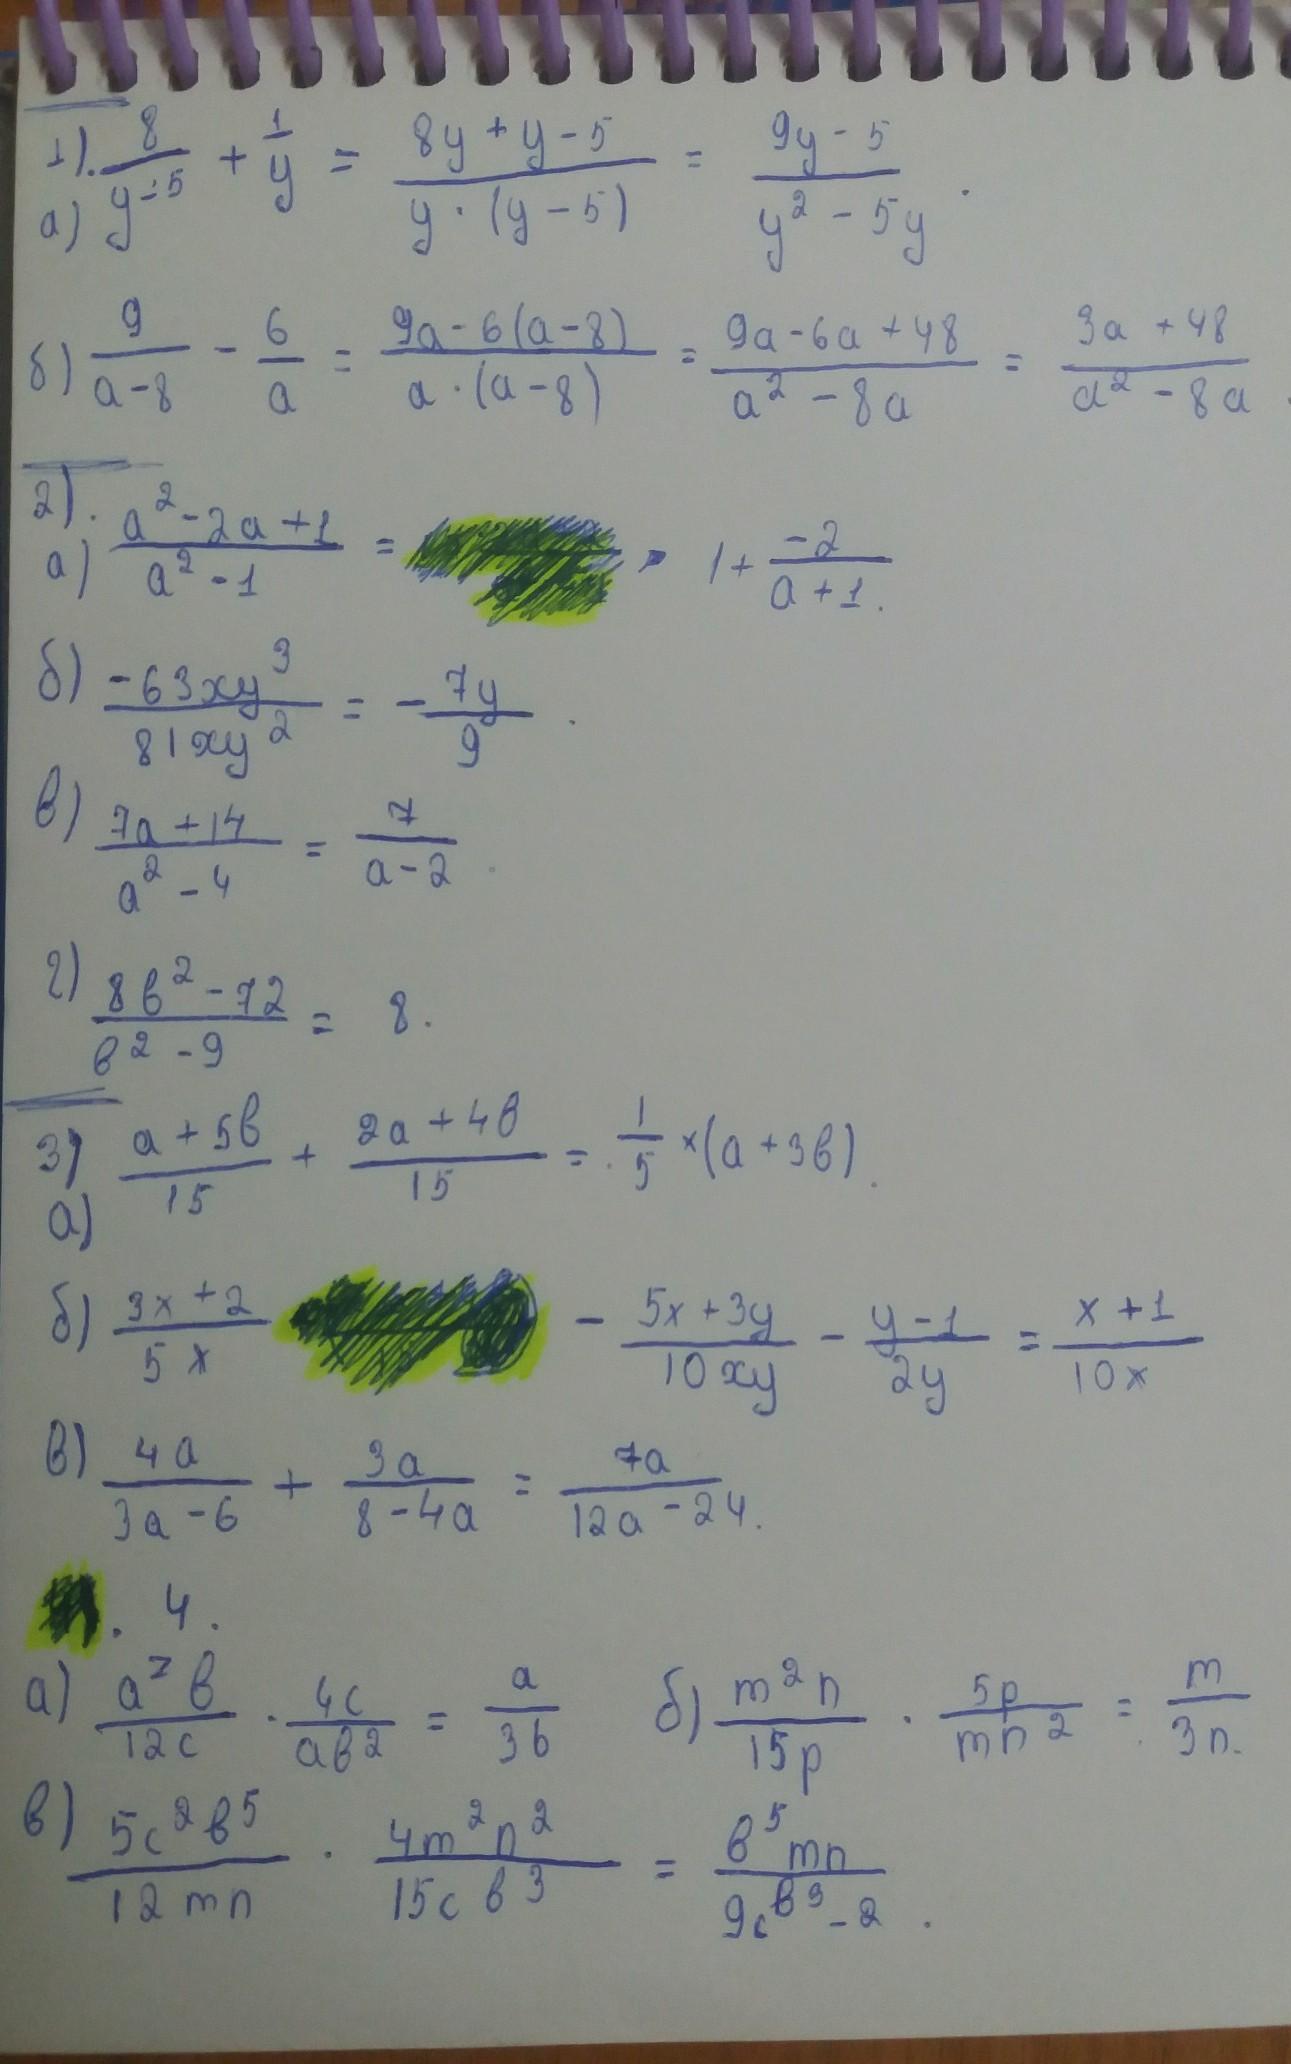 1). 8/(y-5) + 1/y = (8y + y - 5)/(y · (y - 5)) = (9y - 5)/(y² - 5y).
а)
б) 9/(a-8) - 6/a = (9a - 6(a-8))/(a · (a-8)) = (9a - 6a + 48)/(a² - 8a) = (3a + 48)/(a² - 8a).
2).
а) (a² - 2a + 1)/(a² - 1) = 1 + (-2)/(a+1).
б) (-63xy³)/(81xy²) = - 7y/9.
в) (7a + 14)/(a² - 4) = 7/(a-2).
г) (8в² - 72)/(в² - 9) = 8.
3) (a + 5в)/15 + (2a + 4в)/15 = 1/5 × (a + 3в).
а)
б) (3x + 2)/(5x) - (5x + 3y)/(10xy) - (y - 1)/(2y) = (x + 1)/(10x)
в) 4a/(3a - 6) + 3a/(8 - 4a) = 7a/(12a - 24).
. 4.
а) a²в/(12c) · 4c/(aв²) = a/(3b) б) m²n/(15p) · 5p/(mn²) = m/(3n).
в) 5c²в⁵/(12mn) · 4m²n²/(15cв³) = в⁵mn/(9cв³-2).